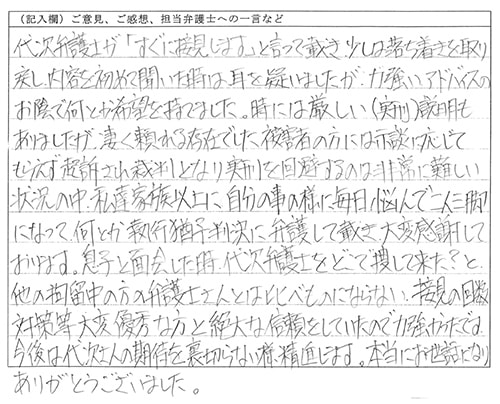 （記入欄）ご意見、ご感想、担当弁護士への一言など
代次弁護士が「すぐに接見します。」と言って戴き、少しは落ち着きを取り
戻し、内容を初めて聞いた時は、耳を疑いましたが、力強いアドバイスの
お陰で何とか希望を持てました。時には厳しい（実刑）説明も
ありましたが、凄く頼れる存在でした。被害者の方には示談に応じて
もらえず起訴され裁判となり実刑を回避するのは非常に難しい
状況の中、私達家族以上に自分の事の様に毎日悩んで二人三脚
になって、何とか執行猶予判決に弁護して戴き、大変感謝して
おります。息子と面会した時、代次弁護士をどこで捜して来た？と、
他の拘留中の方の弁護士さんとはくらべものにならない、接見の回数
対策等、大変優秀な方と絶大な信頼をしていたので力強かったです。
今後は代次さんの期待を裏切らない様、精進します。本当にお世話になり
ありがとうございました。